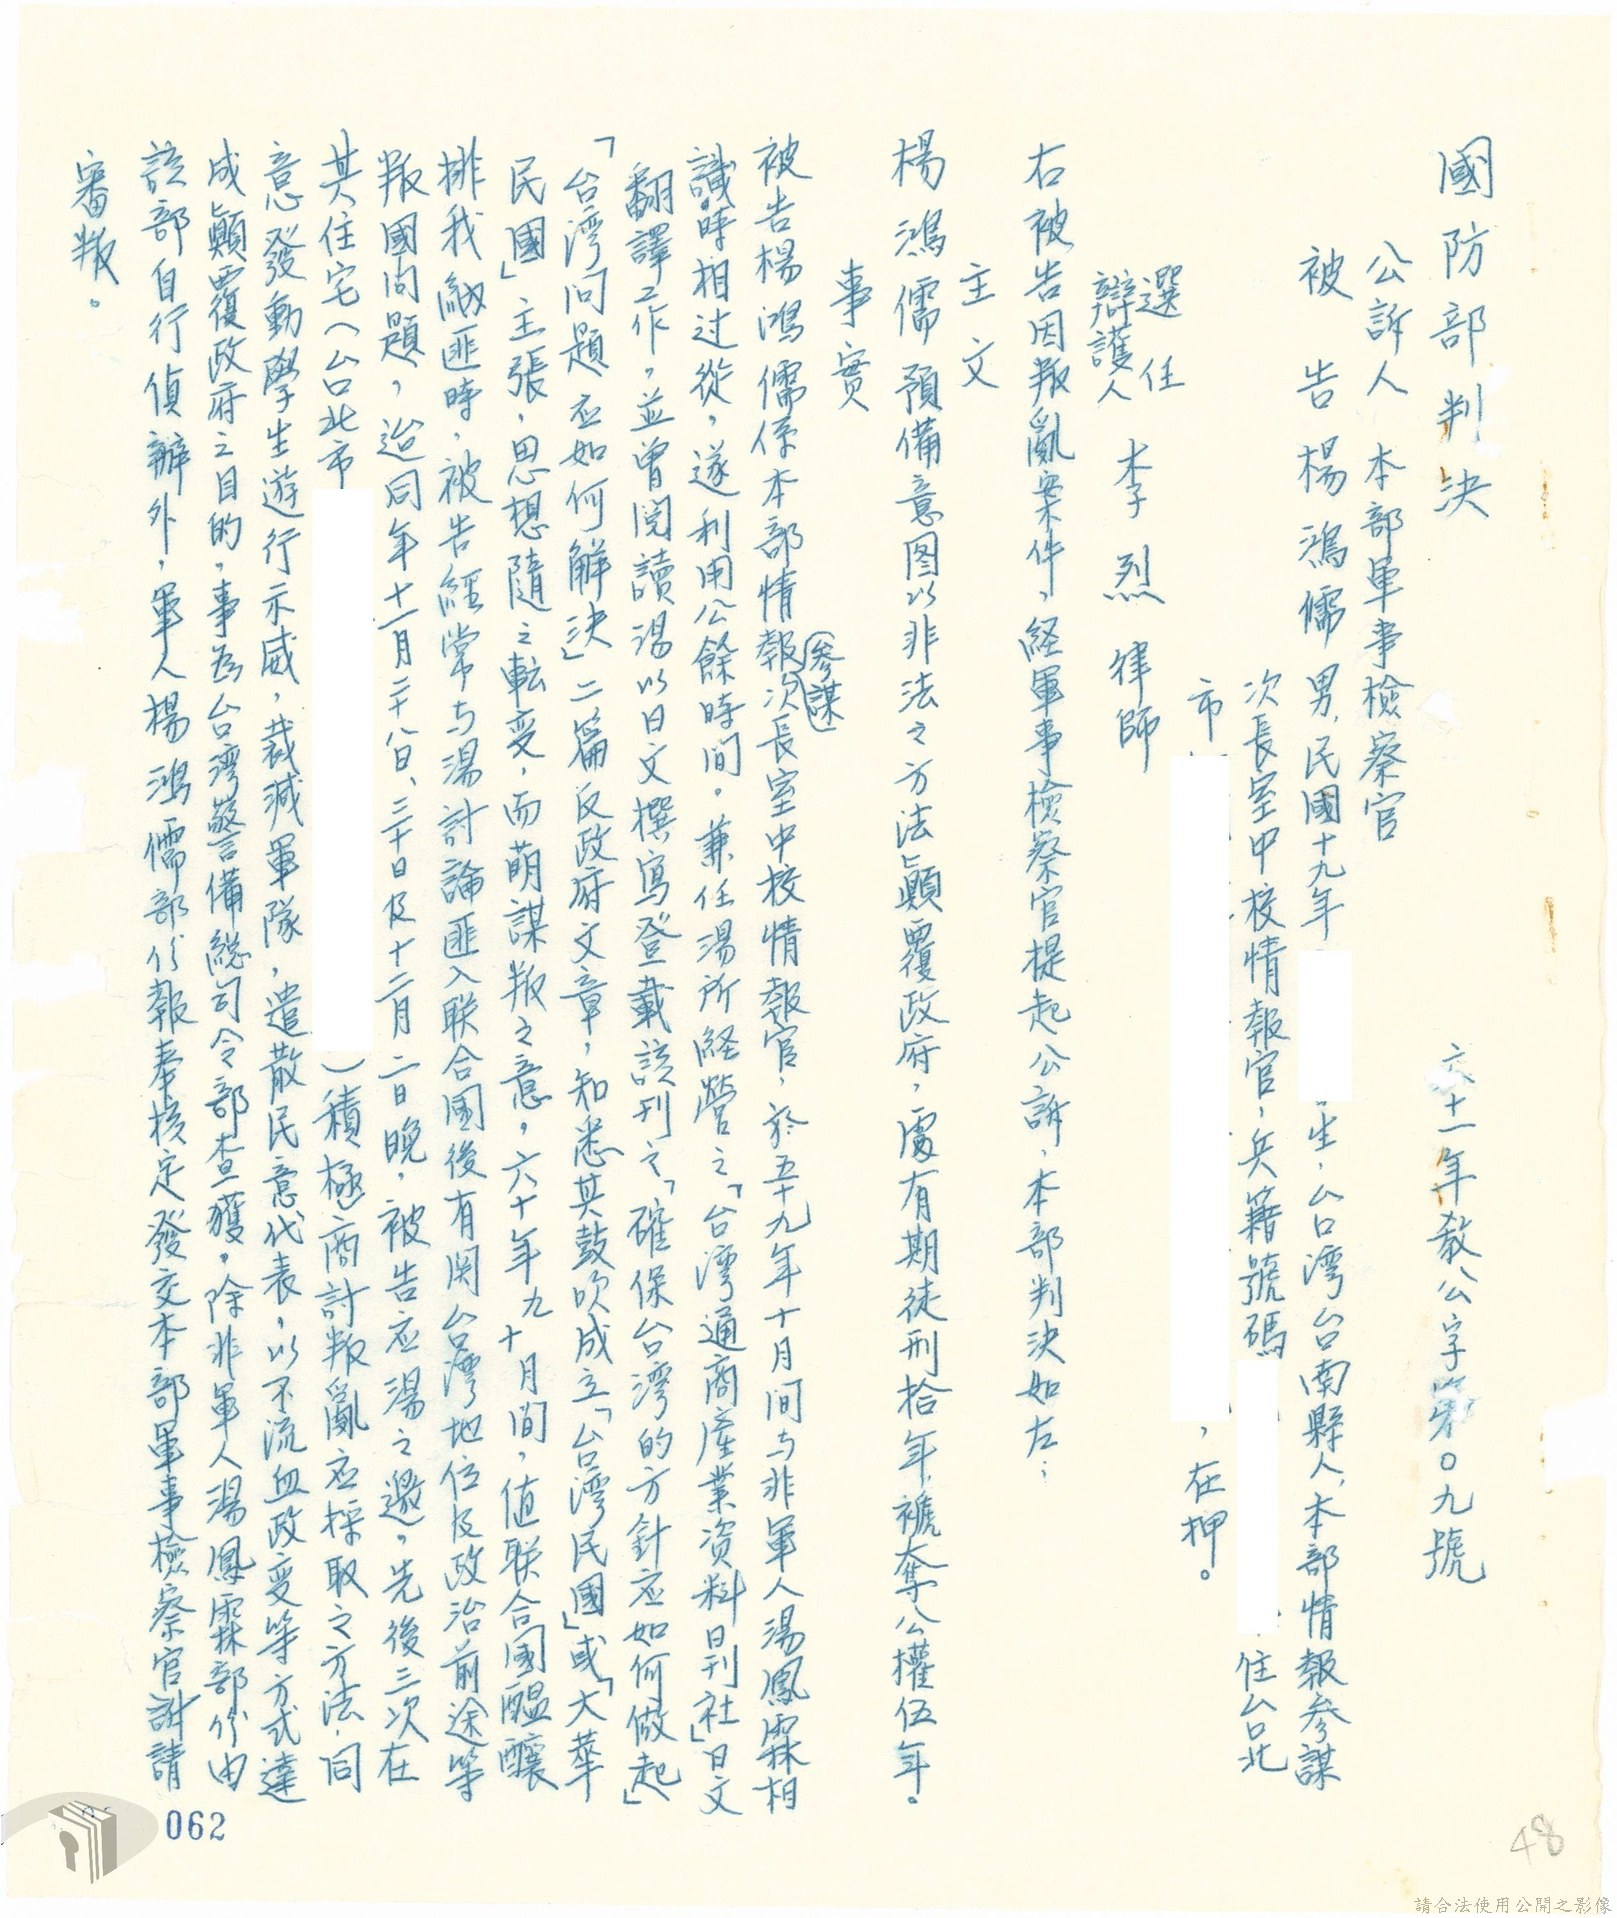 國防部判決
六十一年教公字第〇九號
公訴人 本部軍事檢察官
被告 楊鴻儒 男，民國十九年
生，台湾台南縣人，本部情報參謀
次長室中校情報官，兵籍號碼
住台北
市
，在押。
選任
辯護人 李烈律師
右被告因叛亂案件，経軍事檢察官提起公訴，本部判決如左：
主文
楊鴻儒預備意图以非法之方法顛覆政府，處有期徒刑拾年，褫奪公權伍年。
事實
被告楊鴻儒係本部情報(參謀)次長室中校情報官，於五十九年十月间与非軍人湯鳳霖相
識，時相过從，遂利用公餘時间。兼任湯所経營之「台湾通商產業资料日刊社」日文
翻譯工作，並曾閱讀湯以日文撰寫登載該刊之「確保台湾的方針应如何做起」
「台湾问題应如何解決」二篇反政府文章，知悉其鼓吹成立「台湾民國」或「大華
民國」主張，思想隨之転变，而萌謀叛之意，六十年九十月間，值联合國醞釀
排我納匪時，被告經常与湯討論匪入联合國後有関台灣地位及政治前途等
叛國问題，迨同年十一月二十八日、三十日及十二月二日晚，被告应湯之邀，先後三次在
其住宅（台北市
）積極商討叛亂应採取之方法，同
意發動學生遊行示威，裁減軍隊，遣散民意代表，以不流血政变等方式達
成顛覆政府之目的，事為台湾警備総司令部查獲，除非軍人湯鳳霖部份由
該部自行偵辦外，軍人楊鴻儒部份報奉核定發交本部軍事檢察官訴請
審叛。
062
48
請合法使用公開之影像